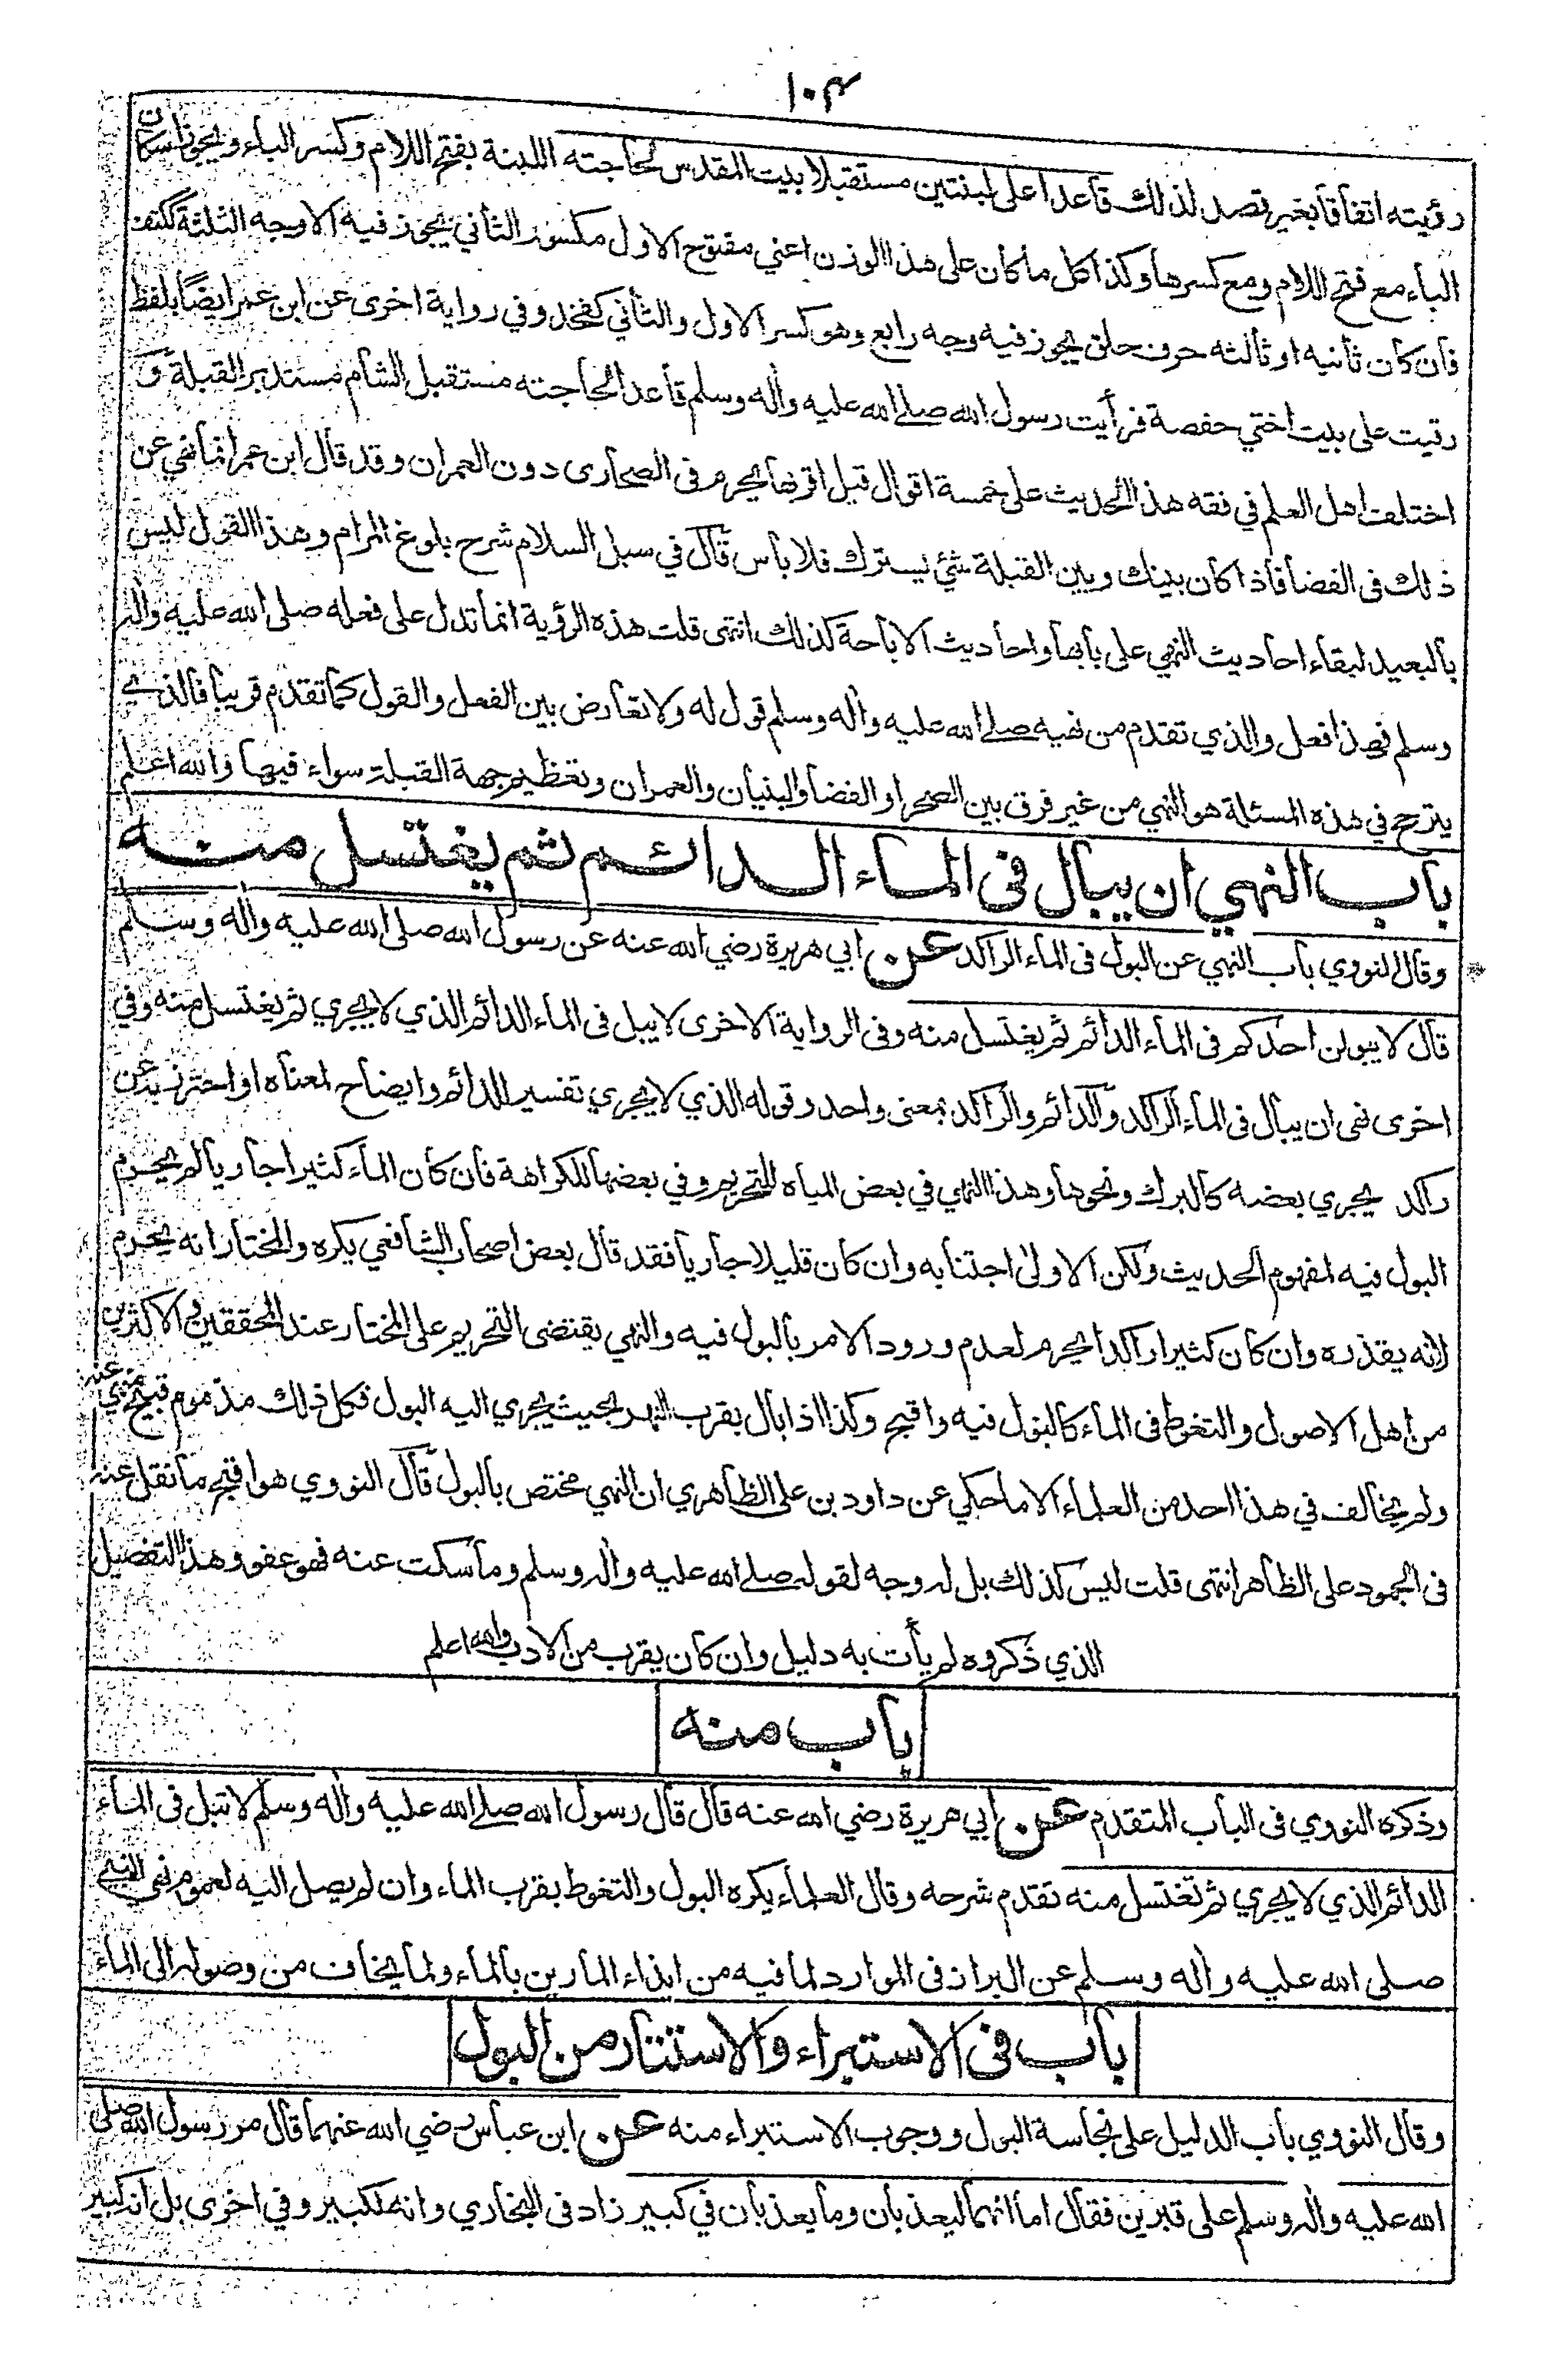 ١٠٣
رؤيته اتفاقا بغير قصد لذلك قاعدا على لبنتين مستقبلا بيت المقدس لحاجته اللبنة بفتح اللام وكسر الباء ويجوز اسكان
الباء مع فتح اللام ومع كسرها وكذا كل ما كان على هذا الوزن اعني مفتوح الاول مكسور الثاني يجوز فيه الاوجه الثلثة ككتف
فان كان ثانيه او ثالثه حرف حلق يجوز فيه وجه رابع وهو كسر الاول والثاني كفخذ وفي رواية اخرى عن ابن عمر ايضا بلفظ
رقيت على بيت اختي حفصة فرأيت رسول الله صلى الله عليه واله وسلم قاعدا لحاجته مستقبل الشام مستدبر القبلة و
اختلف اهل العلم في فقه هذا الحديث على خمسة اقوال قيل اقربها يحرم فى الصحارى دون العمران وقد قال ابن عمر انما نهي عن
ذلك فى الفضا فاذا كان بينك وبين القبلة شئ يسترك فلا باس قال في سبل السلام شرح بلوغ المرام وهذا القول ليس
بالبعيد لبقاء احاديث النهي على بابها واحاديث الاباحة كذلك انتهى قلت هذه الرؤية انما تدل على فعله صلى الله عليه واله
وسلم فهذا فعل والذي تقدم من نهيه صلى الله عليه واله وسلم قول له ولا تعارض بين الفعل والقول كما تقدم قريبا فالذي
يترجح في هذه المسئلة هو النهي من غير فرق بين الصحرا والفضا والبنيان والعمران وتعظيم جهة القبلة سواء فيها والله اعلم
باب النهي ان يبال فى الماء الدائم ثم يغتسل منه
وقال النووي باب النهي عن البول فى الماء الراكد عن ابي هريرة رضي الله عنه عن رسول الله صلى الله عليه واله وسلم
قال لا يبولن احدكم فى الماء الدائم ثم يغتسل منه وفى الرواية الاخرى لا يبل فى الماء الدائم الذي لا يجري ثم يغتسل منه وفي
اخرى نهى ان يبال فى الماء الراكد والدائم والراكد بمعنى واحد وقوله الذي لا يجري تفسير للدائم وايضاح لمعناه او احترز به عن
راكد يجري بعضه كالبرك ونحوها وهذا النهي في بعض المياه للتحريم وفي بعضها للكراهة فان كان الماء كثيرا جاريا لم يحرم
البول فيه لمفهوم الحديث ولكن الاولى اجتنابه وان كان قليلا جاريا فقد قال بعض اصحاب الشافعي يكره والمختار انه يحرم
لانه يقذره وان كان كثيرا راكدا لم يحرم لعدم ورود الامر بالبول فيه والنهي يقتضى التحريم على المختار عند المحققين والاكثرين
من اهل الاصول والتغوط فى الماء كالبول فيه واقبح وكذا اذا بال بقرب النهر بحيث يجري اليه البول فكل ذلك مذموم قبيح منهي عنه
ولم يخالف في هذا احد من العلماء الا ما حكي عن داود بن علي الظاهري ان النهي مختص بالبول قال النووي هو اقبح ما نقل عنه
فى الجمود على الظاهر انتهى قلت ليس كذلك بل له وجه لقوله صلى الله عليه واله وسلم وما سكت عنه فهو عفو وهذا التفصيل
الذي ذكروه لم يأت به دليل وان كان يقرب من الادب والله اعلم
باب منه
وذكره النووي فى الباب المتقدم عن ابي هريرة رضي الله عنه قال قال رسول الله صلى الله عليه واله وسلم لا تبل فى الماء
الدائم الذي لا يجري ثم تغتسل منه تقدم شرحه وقال العلماء يكره البول والتغوط بقرب الماء وان لم يصل اليه لعموم نهي النبي
صلى الله عليه واله وسلم عن البراز فى الموارد لما فيه من ايذاء المارين بالماء ولما يخاف من وصوله الى الماء
باب فى الاستبراء والاستتار من البول
وقال النووي باب الدليل على نجاسة البول ووجوب الاستبراء منه عن ابن عباس رضي الله عنهما قال مر رسول الله صلى
الله عليه واله وسلم على قبرين فقال اما انهما ليعذبان وما يعذبان في كبير زاد فى البخاري وانه لكبير وفي اخرى بل انه كبير